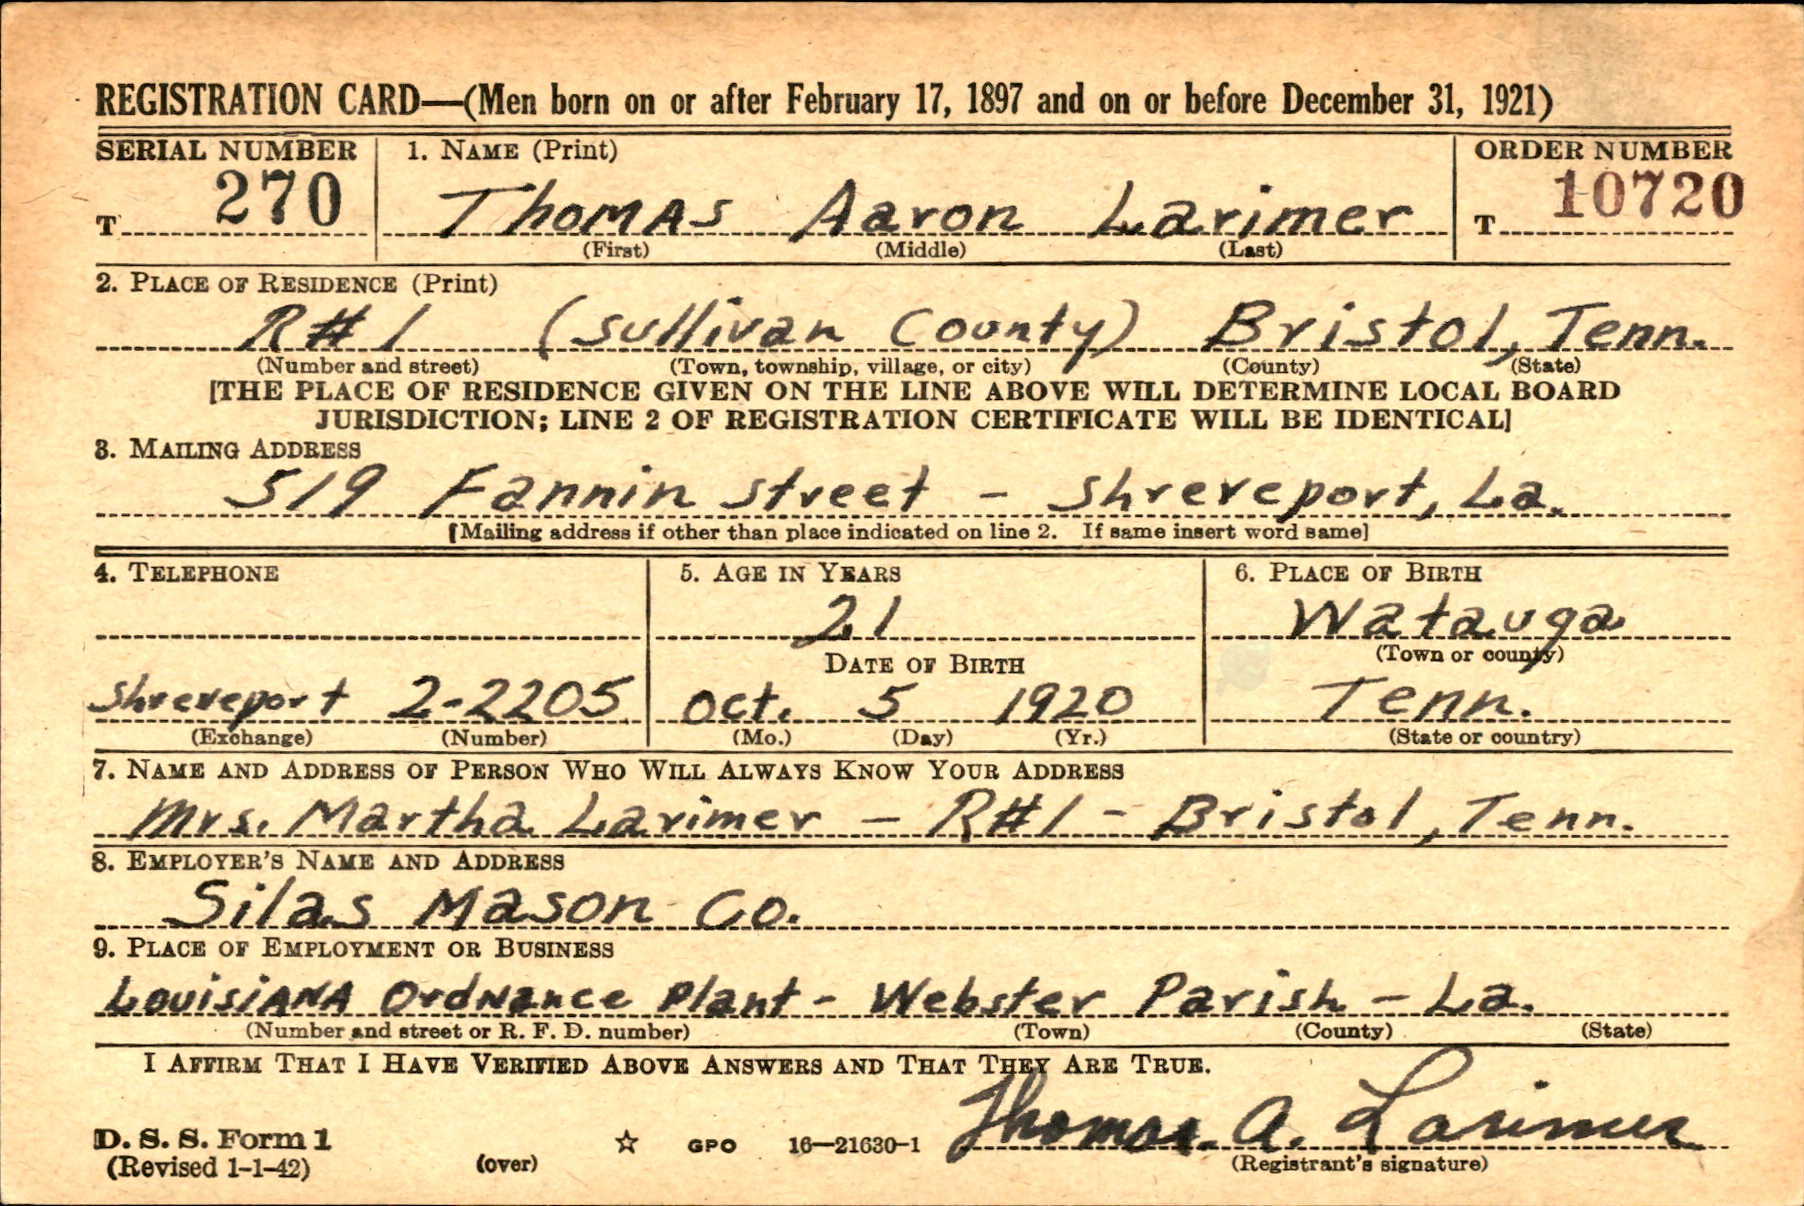 REGISTRATION CARD—(Men born on or after February 17, 1897 and on or before December 31, 1921)
SERIAL NUMBER 1. NAME (Print) ORDER NUMBER
T 270 Thomas Aaron Larimer T 10720
(First) (Middle) (Last)
2. PLACE OF RESIDENCE (Print)
R#1 (Sullivan County) Bristol, Tenn.
(Number and street) (Town, township, village, or city) (County) (State)
[THE PLACE OF RESIDENCE GIVEN ON THE LINE ABOVE WILL DETERMINE LOCAL BOARD
JURISDICTION; LINE 2 OF REGISTRATION CERTIFICATE WILL BE IDENTICAL]
3. MAILING ADDRESS
519 Fannin Street - Shreveport, La.
[Mailing address if other than place indicated on line 2. If same insert word same]
4. TELEPHONE 5. AGE IN YEARS 6. PLACE OF BIRTH
21 Watauga
DATE OF BIRTH (Town or county)
Shreveport 2-2205 Oct. 5 1920 Tenn.
(Exchange) (Number) (Mo.) (Day) (Yr.) (State or country)
7. NAME AND ADDRESS OF PERSON WHO WILL ALWAYS KNOW YOUR ADDRESS
Mrs. Martha Larimer - R#1 - Bristol, Tenn.
8. EMPLOYER'S NAME AND ADDRESS
Silas Mason Co.
9. PLACE OF EMPLOYMENT OR BUSINESS
Louisiana Ordnance Plant - Webster Parish - La.
(Number and street or R. F. D. number) (Town) (County) (State)
I AFFIRM THAT I HAVE VERIFIED ABOVE ANSWERS AND THAT THEY ARE TRUE.
D. S. S. Form 1 ☆ GPO 16—21630-1 Thomas. A. Larimer
(Revised 1-1-42) (over) (Registrant's signature)